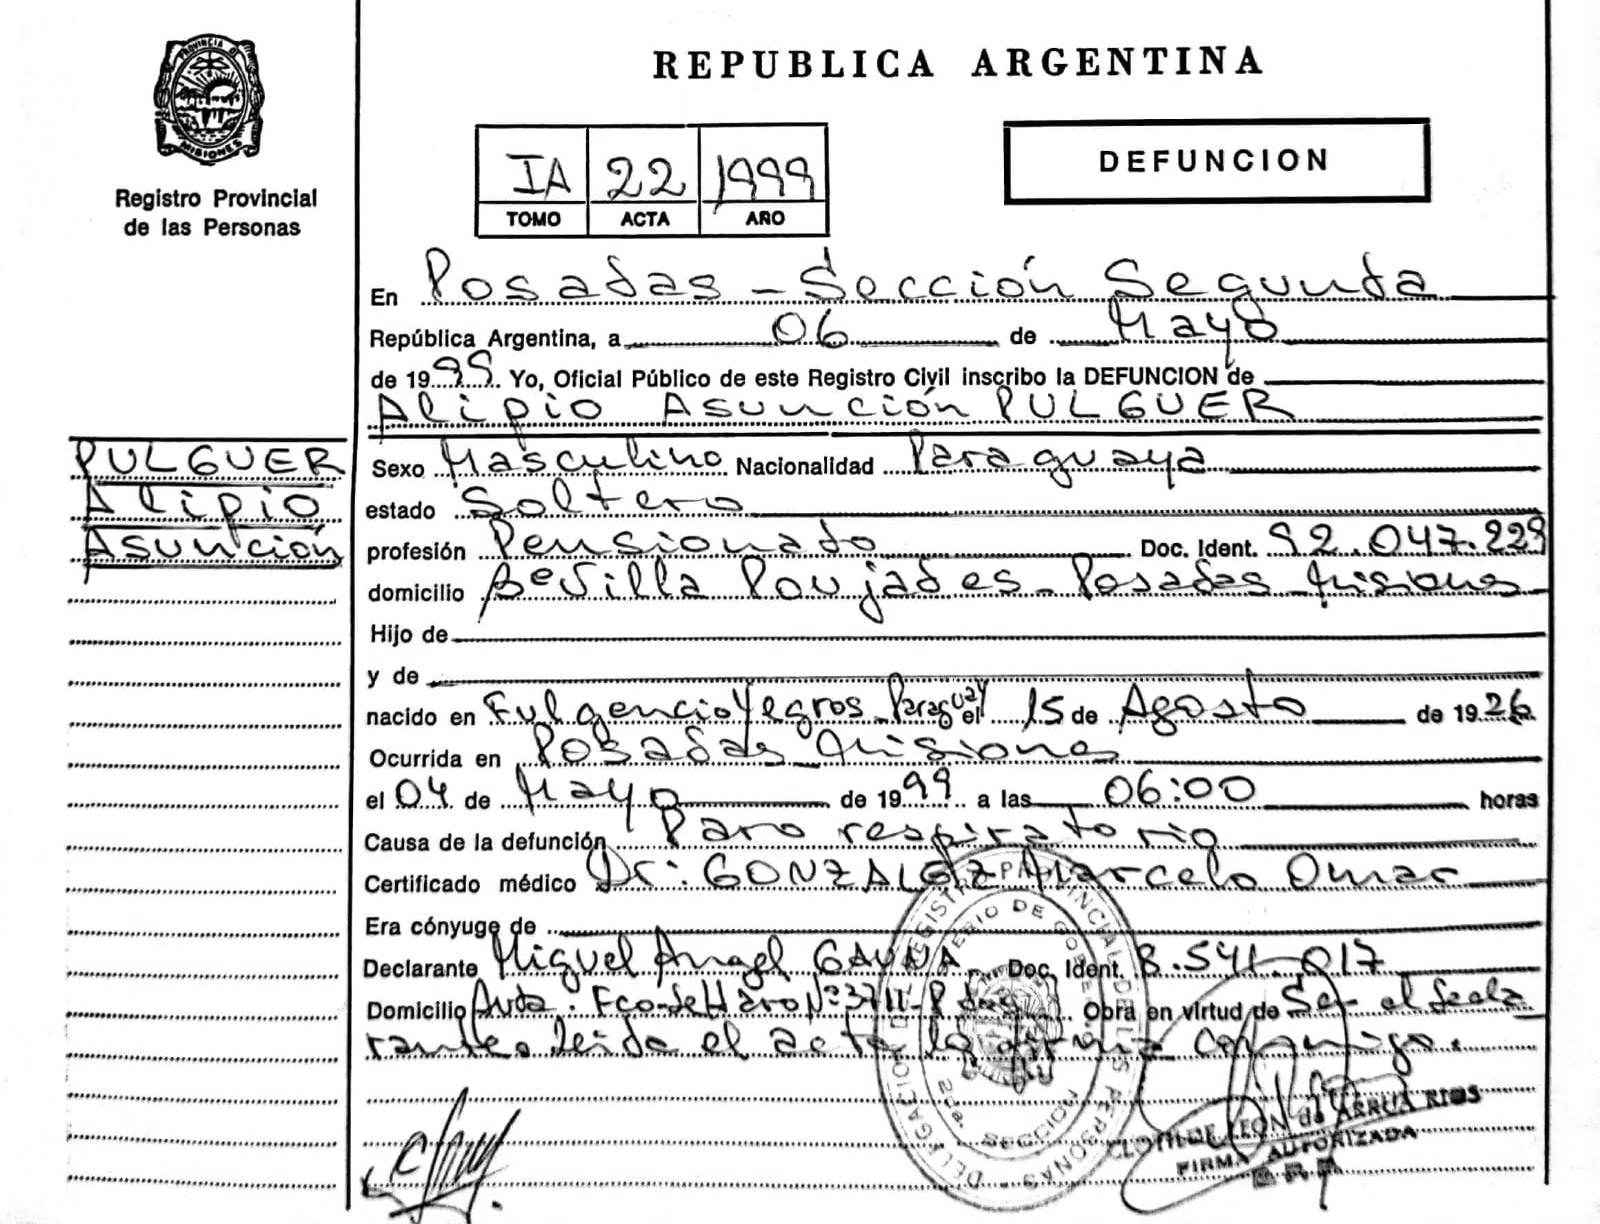 PROVINCIA DE
MISIONES
Registro Provincial
de las Personas
REPUBLICA ARGENTINA
IA 22 1999
TOMO ACTA AÑO
DEFUNCION
En Posadas - Sección Segunda
República Argentina, a 06 de Mayo
de 1999. Yo, Oficial Público de este Registro Civil inscribo la DEFUNCION de
Alipio Asunción PULGUER
PULGUER
Alipio
Asunción
Sexo Masculino Nacionalidad Paraguaya
estado Soltero
profesión Pensionado Doc. Ident. 92.047.229
domicilio Bº Villa Poujades - Posadas Misiones
Hijo de
y de
nacido en Fulgencio Yegros - Paraguay el 15 de Agosto de 1926
Ocurrida en Posadas - Misiones
el 04 de Mayo de 1999 a las 06:00 horas
Causa de la defunción Paro respiratorio
Certificado médico Dr: GONZALEZ Marcelo Omar
Era cónyuge de
Declarante Miguel Angel GAUNA Doc. Ident. 8.541.017
Domicilio Avda. Fco de Haro Nº 3711 - Pdas Obra en virtud de Ser el decla
rante. Leida el acta la firma conmigo.
DELEGACION DEL REGISTRO PROVINCIAL DE LAS PERSONAS
MINISTERIO DE GOBIERNO
2da. SECCION
CLOTILDE LEON de ARRUA RIOS
FIRMA AUTORIZADA